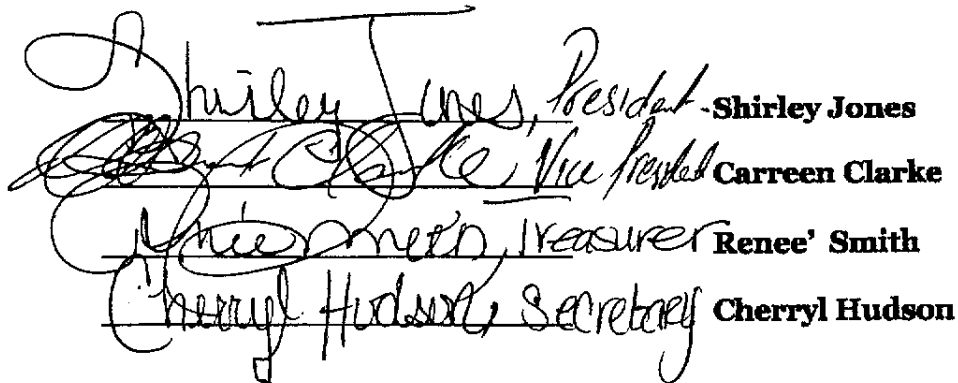 Shirley Jones, President - Shirley Jones
Clarke, Vice President Carreen Clarke
Smith, Treasurer Renee' Smith
Cherryl Hudson, Secretary Cherryl Hudson